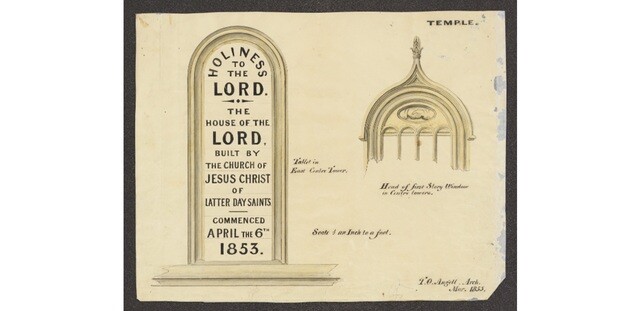 TEMPLE.
HOLINESS
TO
THE
LORD.
THE
HOUSE OF THE
LORD,
BUILT BY
THE CHURCH OF
JESUS CHRIST
OF
LATTER DAY SAINTS
COMMENCED
APRIL THE 6TH
1853.
Tablet in
East Centre Tower.
Head of first Story Window
in Centre towers.
Scale an Inch to a foot.
T.O. Angell, Arch.
Mar. 1855.